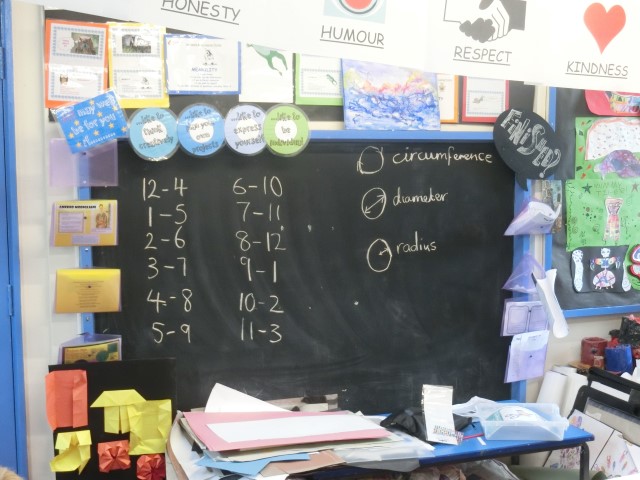 HONESTY
HUMOUR
RESPECT
KINDNESS
may we
be for you
...like to
think
creatively
...like to
...like to
express
yourself
...like to
be
individual
FiNiSHED
12-4
1-5
2-6
3-7
4-8
5-9
6-10
7-11
8-12
9-1
10-2
11-3
circumference
diameter
radius